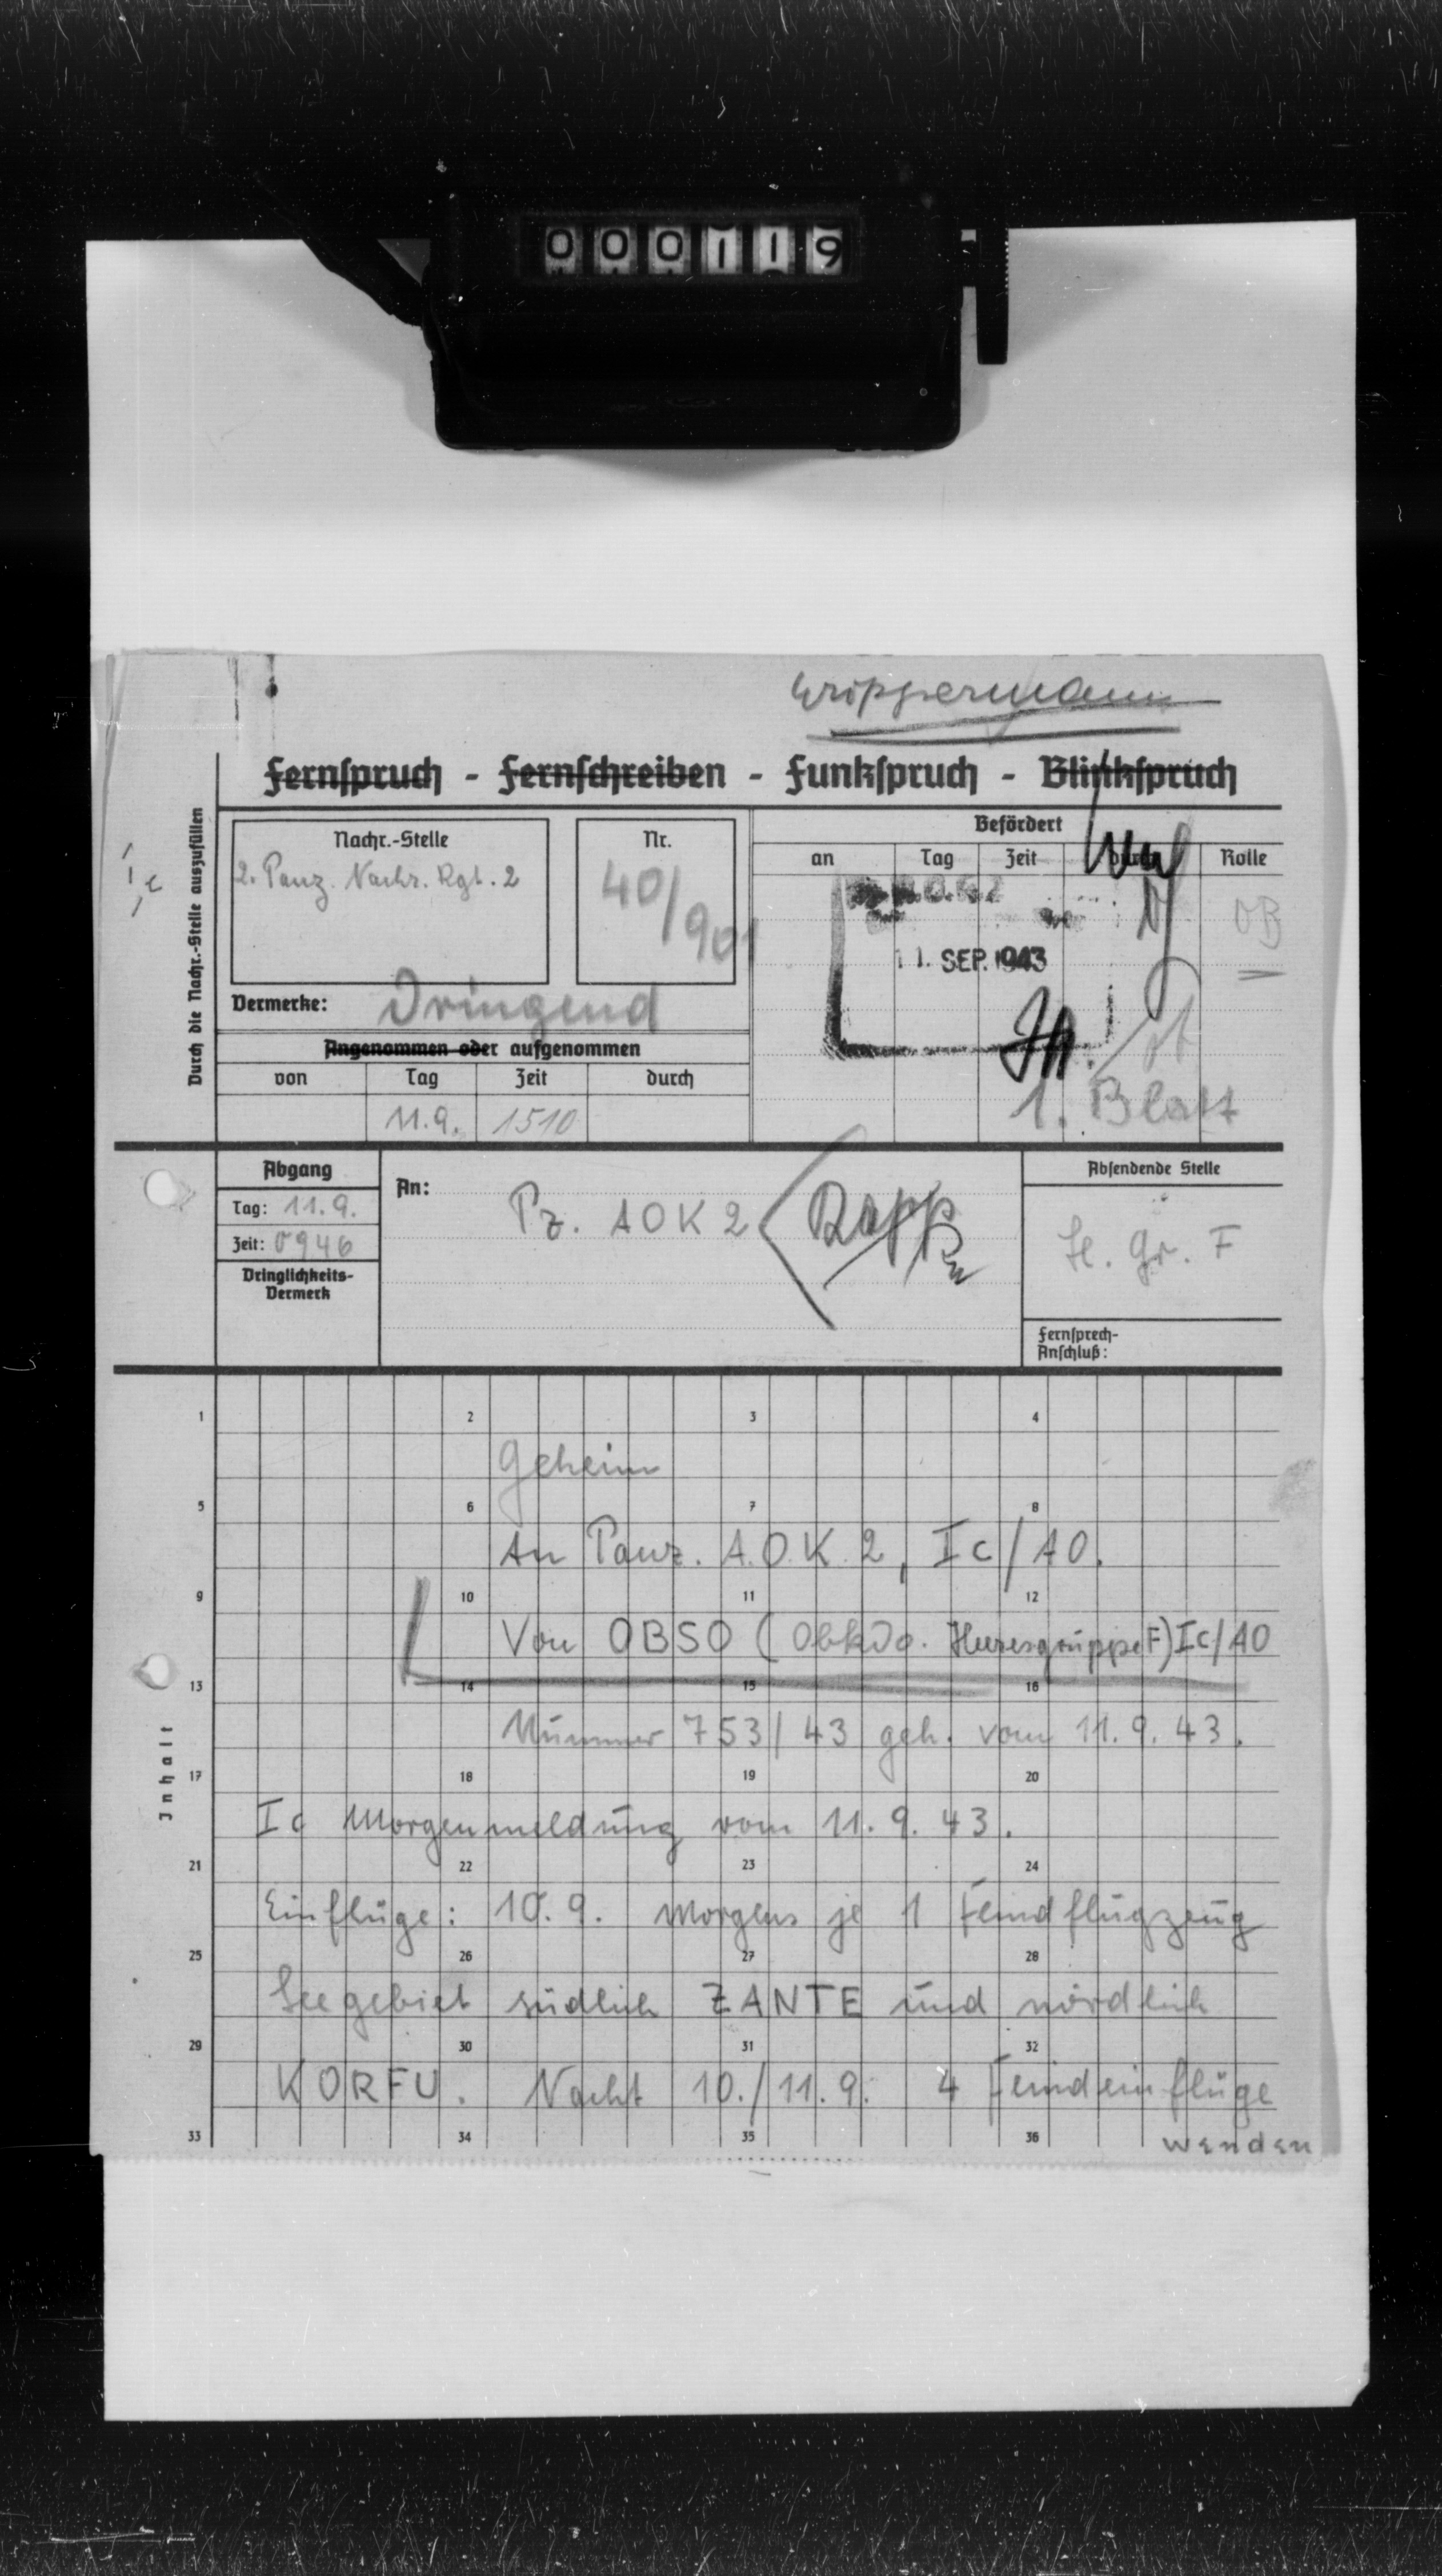 000119
Wippermann
Fernspruch - Fernschreiben - Funkspruch - Blinkspruch
Durch die Nachr.-Stelle auszufüllen
Nachr.-Stelle
2. Panz. Nachr. Rgt. 2
Nr.
40/901
Befördert
an Tag Zeit durch Rolle
OB
11. SEP. 1943
Vermerke: Dringend
Angenommen oder aufgenommen
von Tag Zeit durch
11.9. 1510
1. Blatt
Abgang
Tag: 11.9.
Zeit: 0946
Dringlichkeits-
Vermerk
An: Pz. AOK 2
Absendende Stelle
H. Gr. F
Fernsprech-
Anschluß:
Inhalt
1 2 3 4
Geheim
5 6 7 8
An Panz. A.O.K. 2, Ic/AO.
9 10 11 12
Von OBSO (Obkdo. Heeresgruppe F) Ic/AO
13 14 15 16
Nummer 753/43 geh. vom 11.9.43.
17 18 19 20
Ic Morgenmeldung vom 11.9.43.
21 22 23 24
Einflüge: 10.9. morgens je 1 Feindflugzeug
25 26 27 28
Seegebiet südlich ZANTE und nördlich
29 30 31 32
KORFU. Nacht 10./11.9. 4 Feindeinflüge
33 34 35 36
wenden